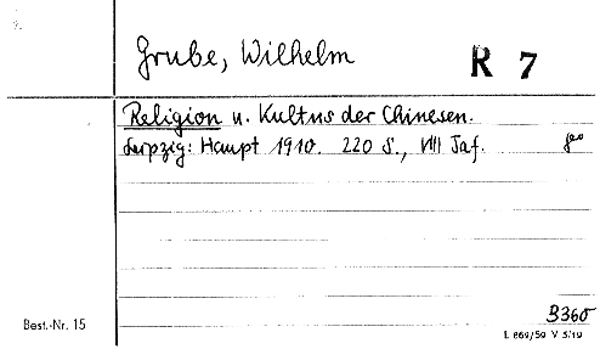 Grube, Wilhelm
R 7
Religion u. Kultus der Chinesen.
Leipzig: Haupt 1910. 220 S., VIII Taf.
B360
Best.-Nr. 15
L 869/59 V 5/19